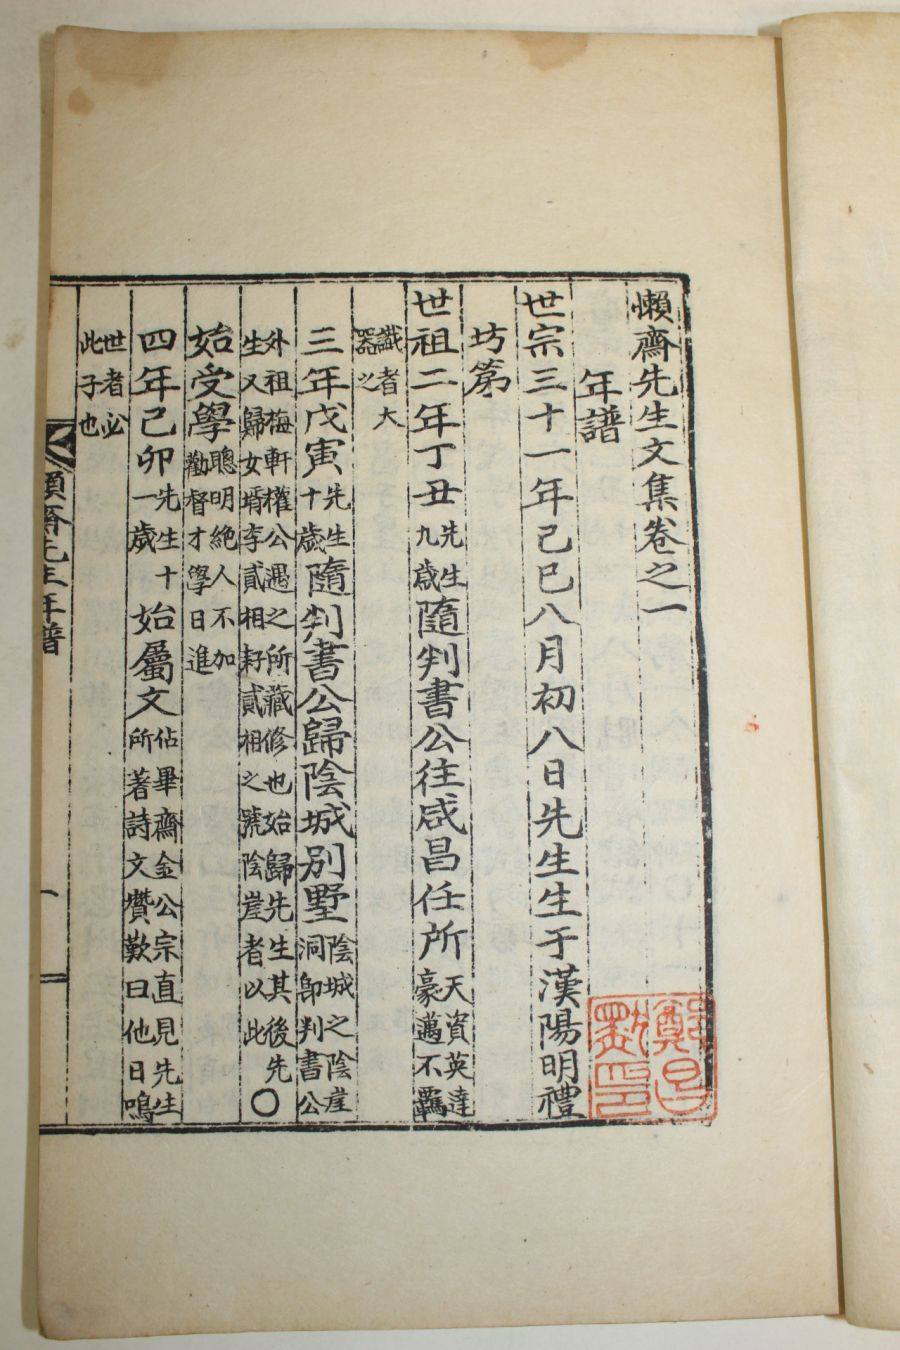 懶齋先生文集卷之一
年譜
世宗三十一年己巳八月初八日先生生于漢陽明禮
坊苐
世祖二年丁丑先生九歲隨判書公往咸昌任所天資英達豪邁不羈
識者大器之
三年戊寅先生十歲隨判書公歸陰城別墅陰城之陰崖洞卽判書公
外祖梅軒權公遇之所藏修也始歸先生其後先生又歸女壻李貳相耔貳相之號陰崖者以此○
始受學聰明絶人不加勸督才學日進
四年己卯先生十一歲始屬文佔畢齋金公宗直見先生所著詩文讚歎曰他日鳴
世者必此子也
懶齋先生年譜 一